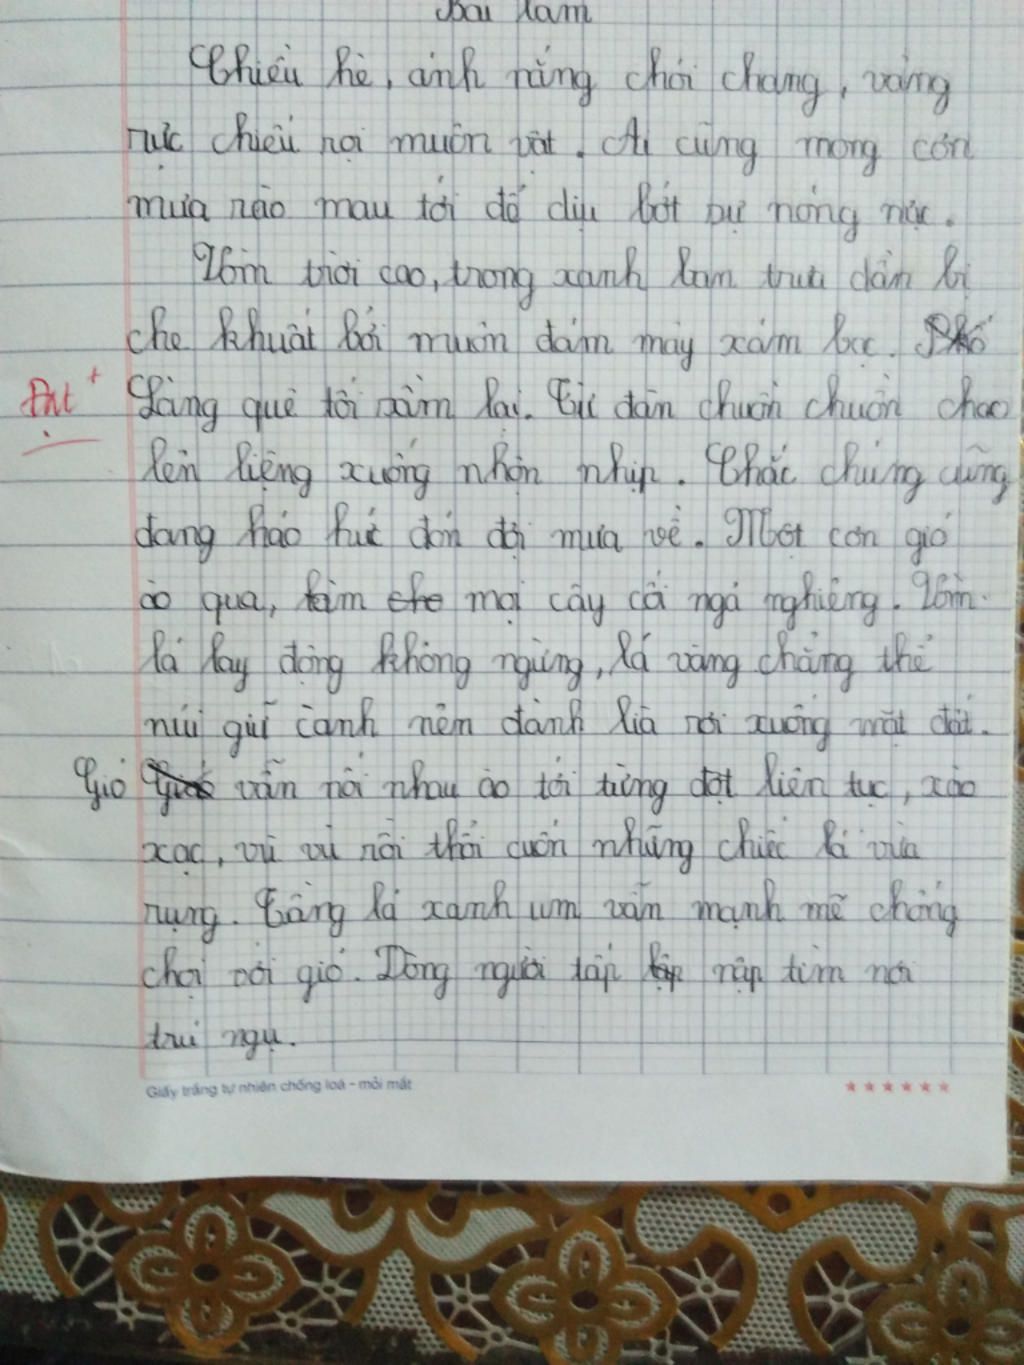 Bài làm
Chiều hè, ánh nắng chói chang, vàng
rực chiếu rọi muôn vật. Ai cũng mong cơn
mưa rào mau tới để dịu bớt sự nóng nực.
Vòm trời cao, trong xanh ban trưa dần bị
che khuất bởi muôn đám mây xám bạc.
Đạt+ Làng quê tối sầm lại. Từ đàn chuồn chuồn chao
lên liệng xuống nhộn nhịp. Chắc chúng cũng
đang háo hức đón đợi mưa về. Một cơn gió
ào qua, làm che mọi cây cối ngả nghiêng. Vòm
lá lay động không ngừng, lá vàng chẳng thể
níu giữ cành nên đành lìa rơi xuống mặt đất.
Gió vẫn nối nhau ào tới từng đợt liên tục, xào
xạc, vù vù rồi thổi cuốn những chiếc lá vừa
rụng. Tầng lá xanh um vẫn mạnh mẽ chống
chọi với gió. Dòng người tấp nập tìm nơi
trú ngụ.
Giấy trắng tự nhiên chống loá - mỏi mắt